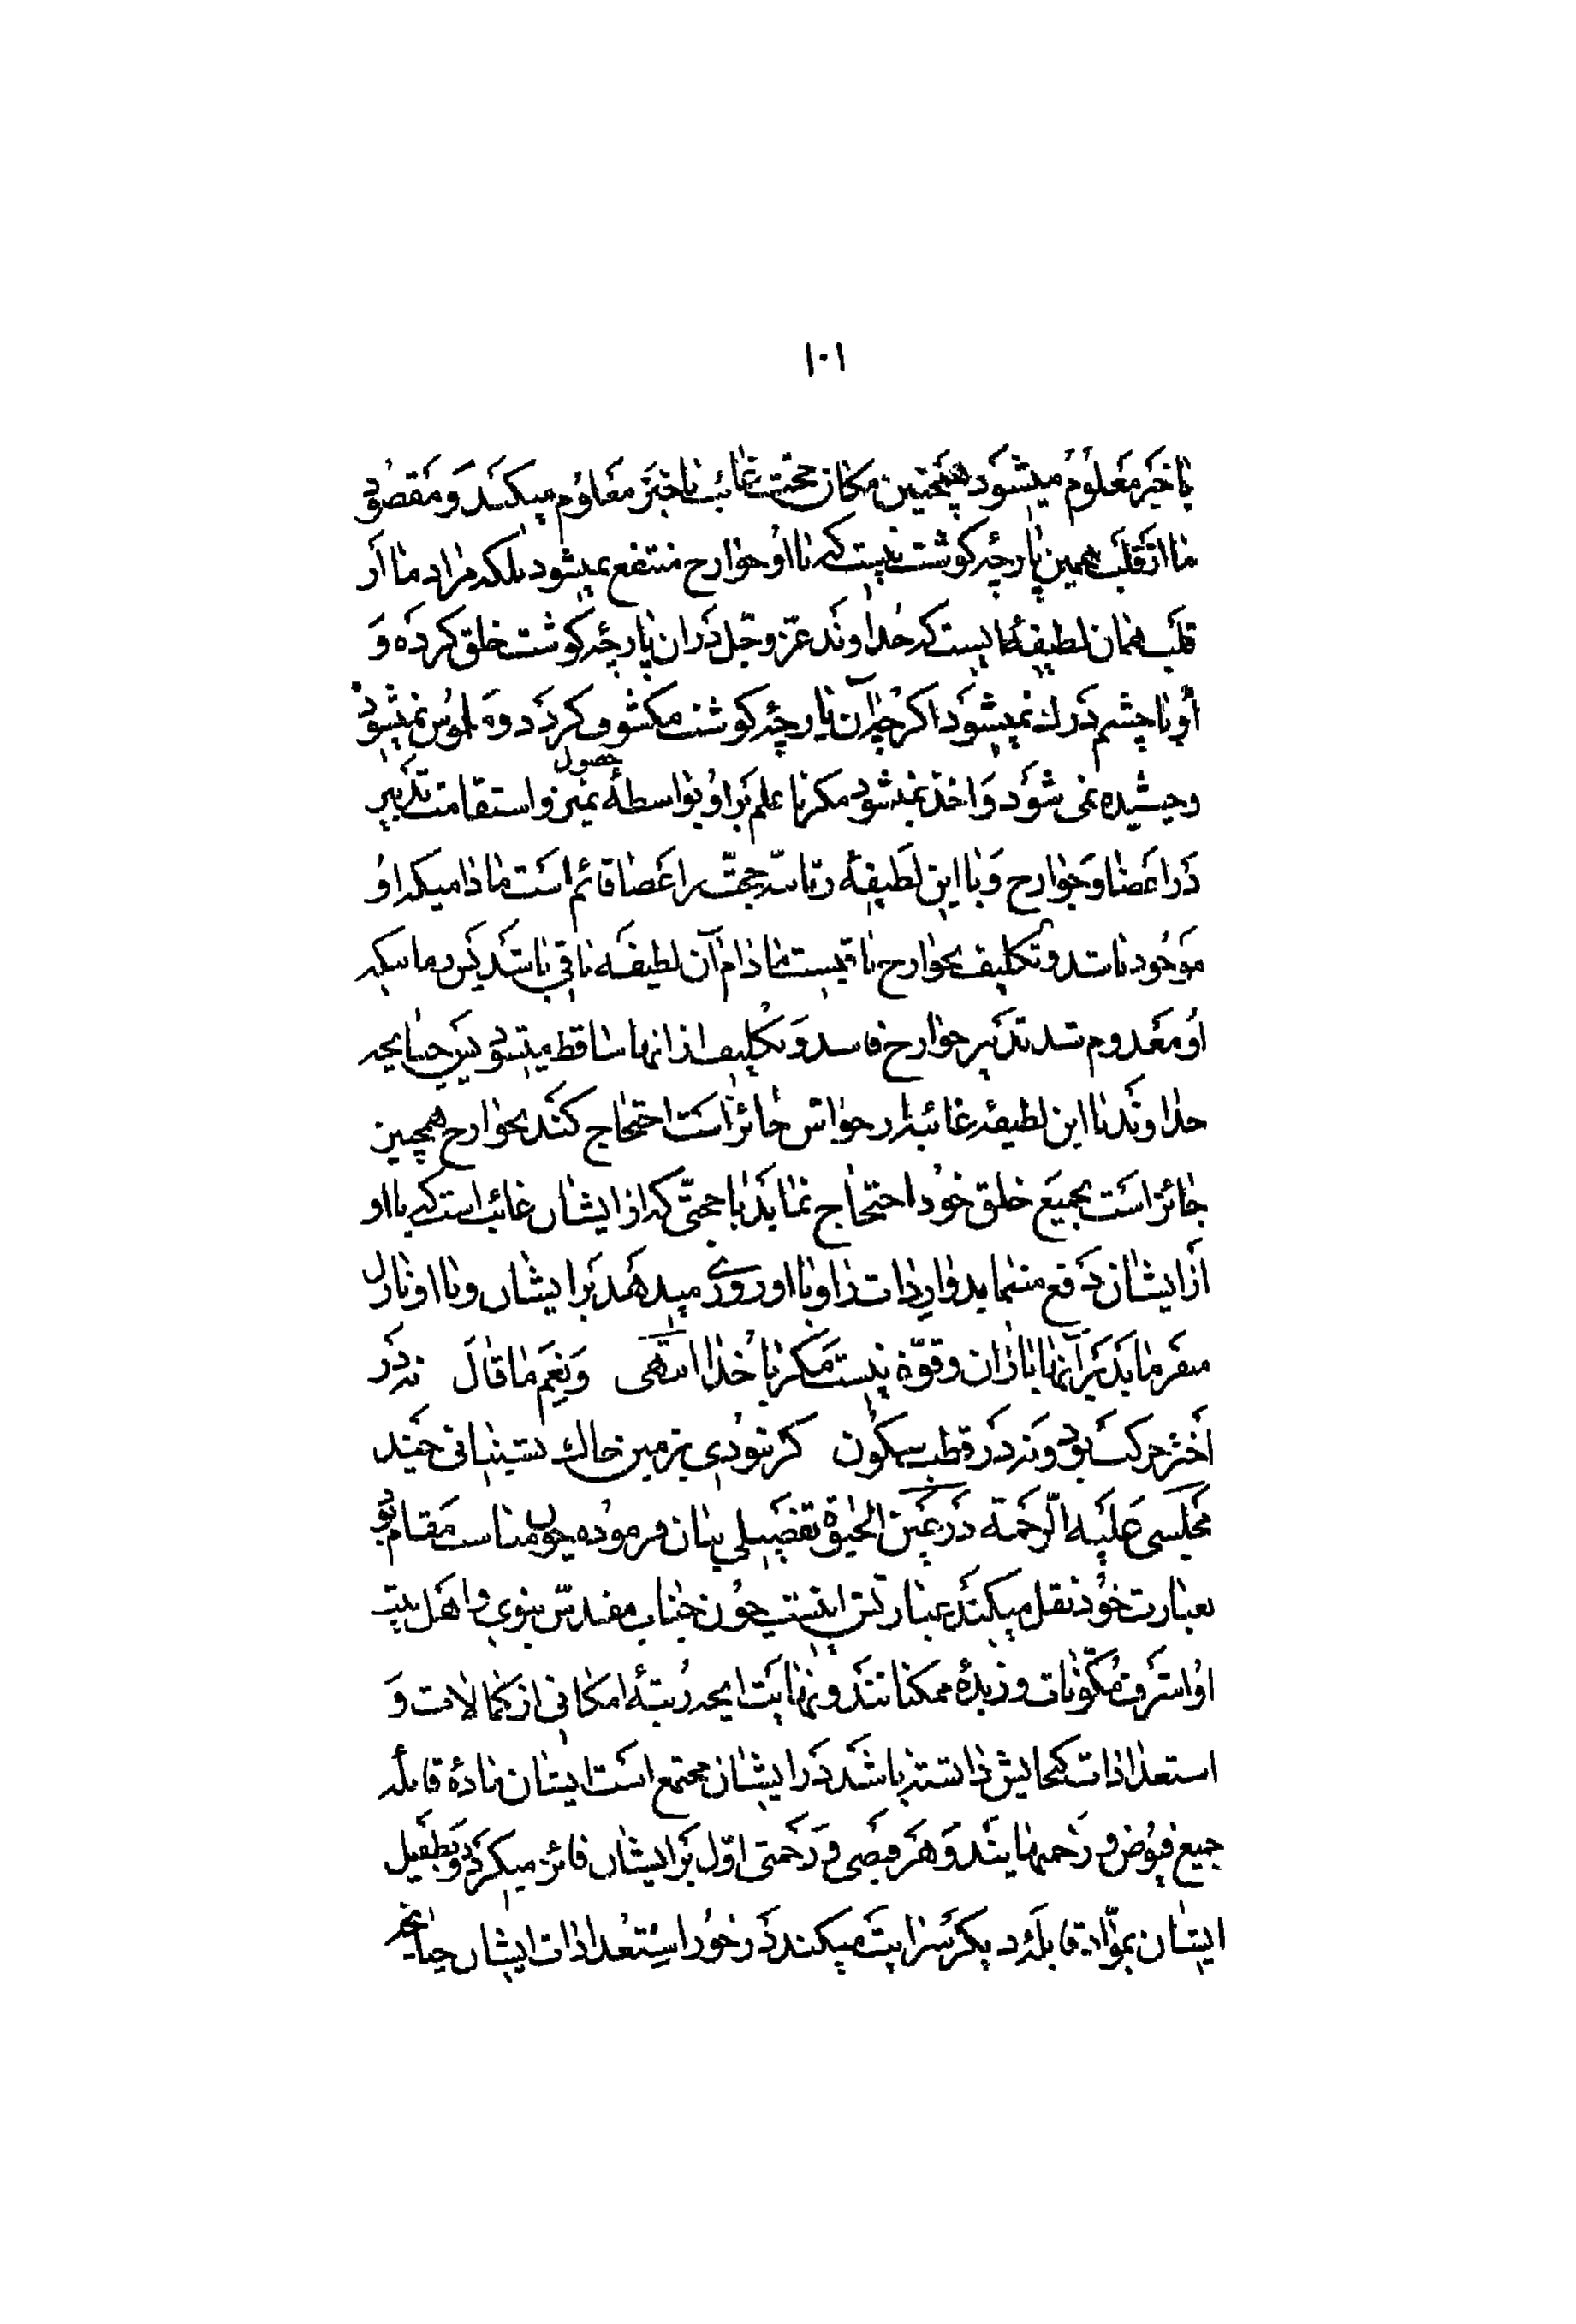 ۱۰۱
با خبر معلوم میشود همچنین مکان حجت غائب با خبر معلوم میکند و مقصود
ما از قلب همین پارچهٔ کوشت نیست که با او جوارح منتفع میشود بلکه مراد ما از
قلب همان لطیفهٔ ایست که خداوند عزّ و جلّ در ان پارچهٔ کوشت خلق کرده و
او با چشم درك نمیشود اکرچه آن پارچهٔ کوشت مکشوف کردد و ملموس نمیشود
و چشیده نمی شود و اخذ نمیشود مکر با علم بر او بواسطهٔ حصول تمیز و استقامت تدبیر
در اعضا و جوارح و با این لطیفه ربّانیّه حجّت بر اعضا قائم است مادامیکه او
موجود باشد و تکلیف بجوارح باقیست مادام آن لطیفه باقی باشد پس زمانیکه
او معدوم شد تدبیر جوارح فاسد و تکلیف از انها ساقط میشود پس چنانچه
خداوند با این لطیفهٔ غائبه از حواسّ جائز است احتجاج کند بجوارح همچنین
جائز است بجمیع خلق خود احتجاج نماید با حجتّی که از ایشان غائب است که با او
از ایشان دفع مینماید و با او روزی میدهد بر ایشان و با او نازل
میفرماید بر آنها باران و قوّة نیست مکر با خدا انتهی و نعم ما قال نه در
اختر حرکت بود و نه در قطب سکون کر نبودی بزمین خاك نشینانی چند
مجلسی علیه الرّحمة در عین الحیوة تفصیلی بیان فرموده چون مناسب مقام بود
بعبارت خود نقل میکند عبارتش اینست چون جناب مقدسّ نبوی و اهل بیت
او اشرف مکوّنات و زبدهٔ ممکناتند و نهایت انچه رتبهٔ امکانی از کمالات و
استعدادات کنجایش داشته باشد در ایشان مجتمع است ایشان مادهٔ قابله
جمیع فیوض و رحمتهایند و هر فیضی و رحمتی اوّل بر ایشان فائز میکردد و بطفیل
ایشان بموّاد قابلهٔ دیکر سرایت میکند در خور استعدادات ایشان چنانچه